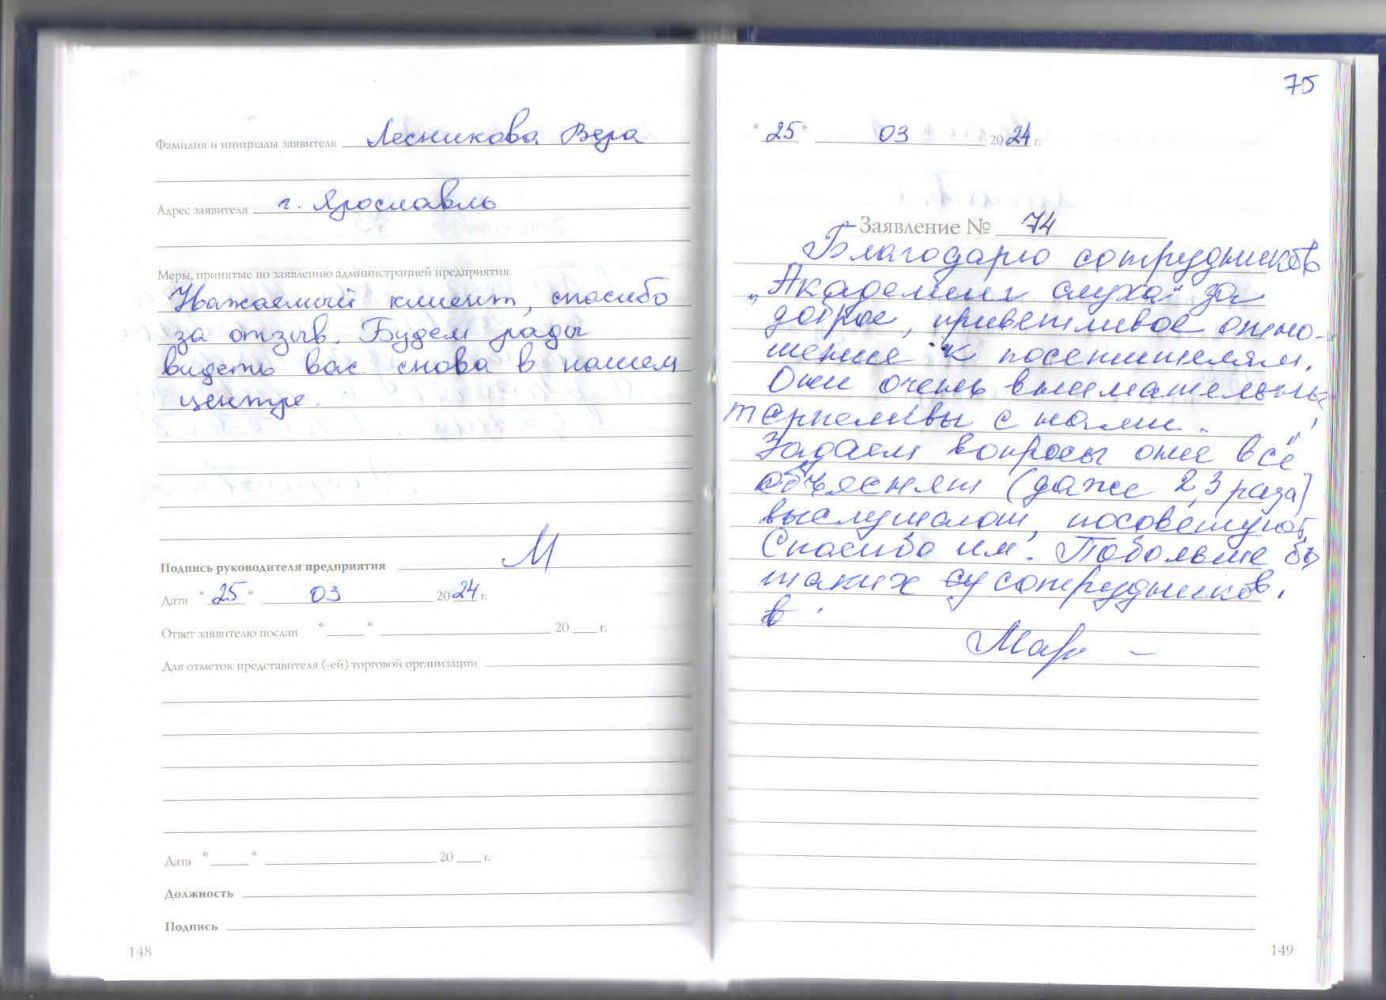 Фамилия и инициалы заявителя Лесникова Вера
Адрес заявителя г. Ярославль
Меры, принятые по заявлению администрацией предприятия:
Уважаемый клиент, спасибо
за отзыв. Будем рады
видеть вас снова в нашем
центре.
Подпись руководителя предприятия
Дата "25" 03 2024 г.
Ответ заявителю послан "___" ___ 20 __ г.
Для отметок представителя (-ей) торговой организации
Дата "___" ___ 20 __ г.
Должность
Подпись
148
75
"25" 03 2024 г.
Заявление № 74
Благодарю сотрудников
"Академии слуха" за
доброе, приветливое отно-
шение к посетителям.
Они очень внимательны,
терпеливы с нами.
Задаем вопросы они всё
объяснят (даже 2,3 раза)
выслушают, посоветуют.
Спасибо им. Побольше бы
таких сотрудников.
149